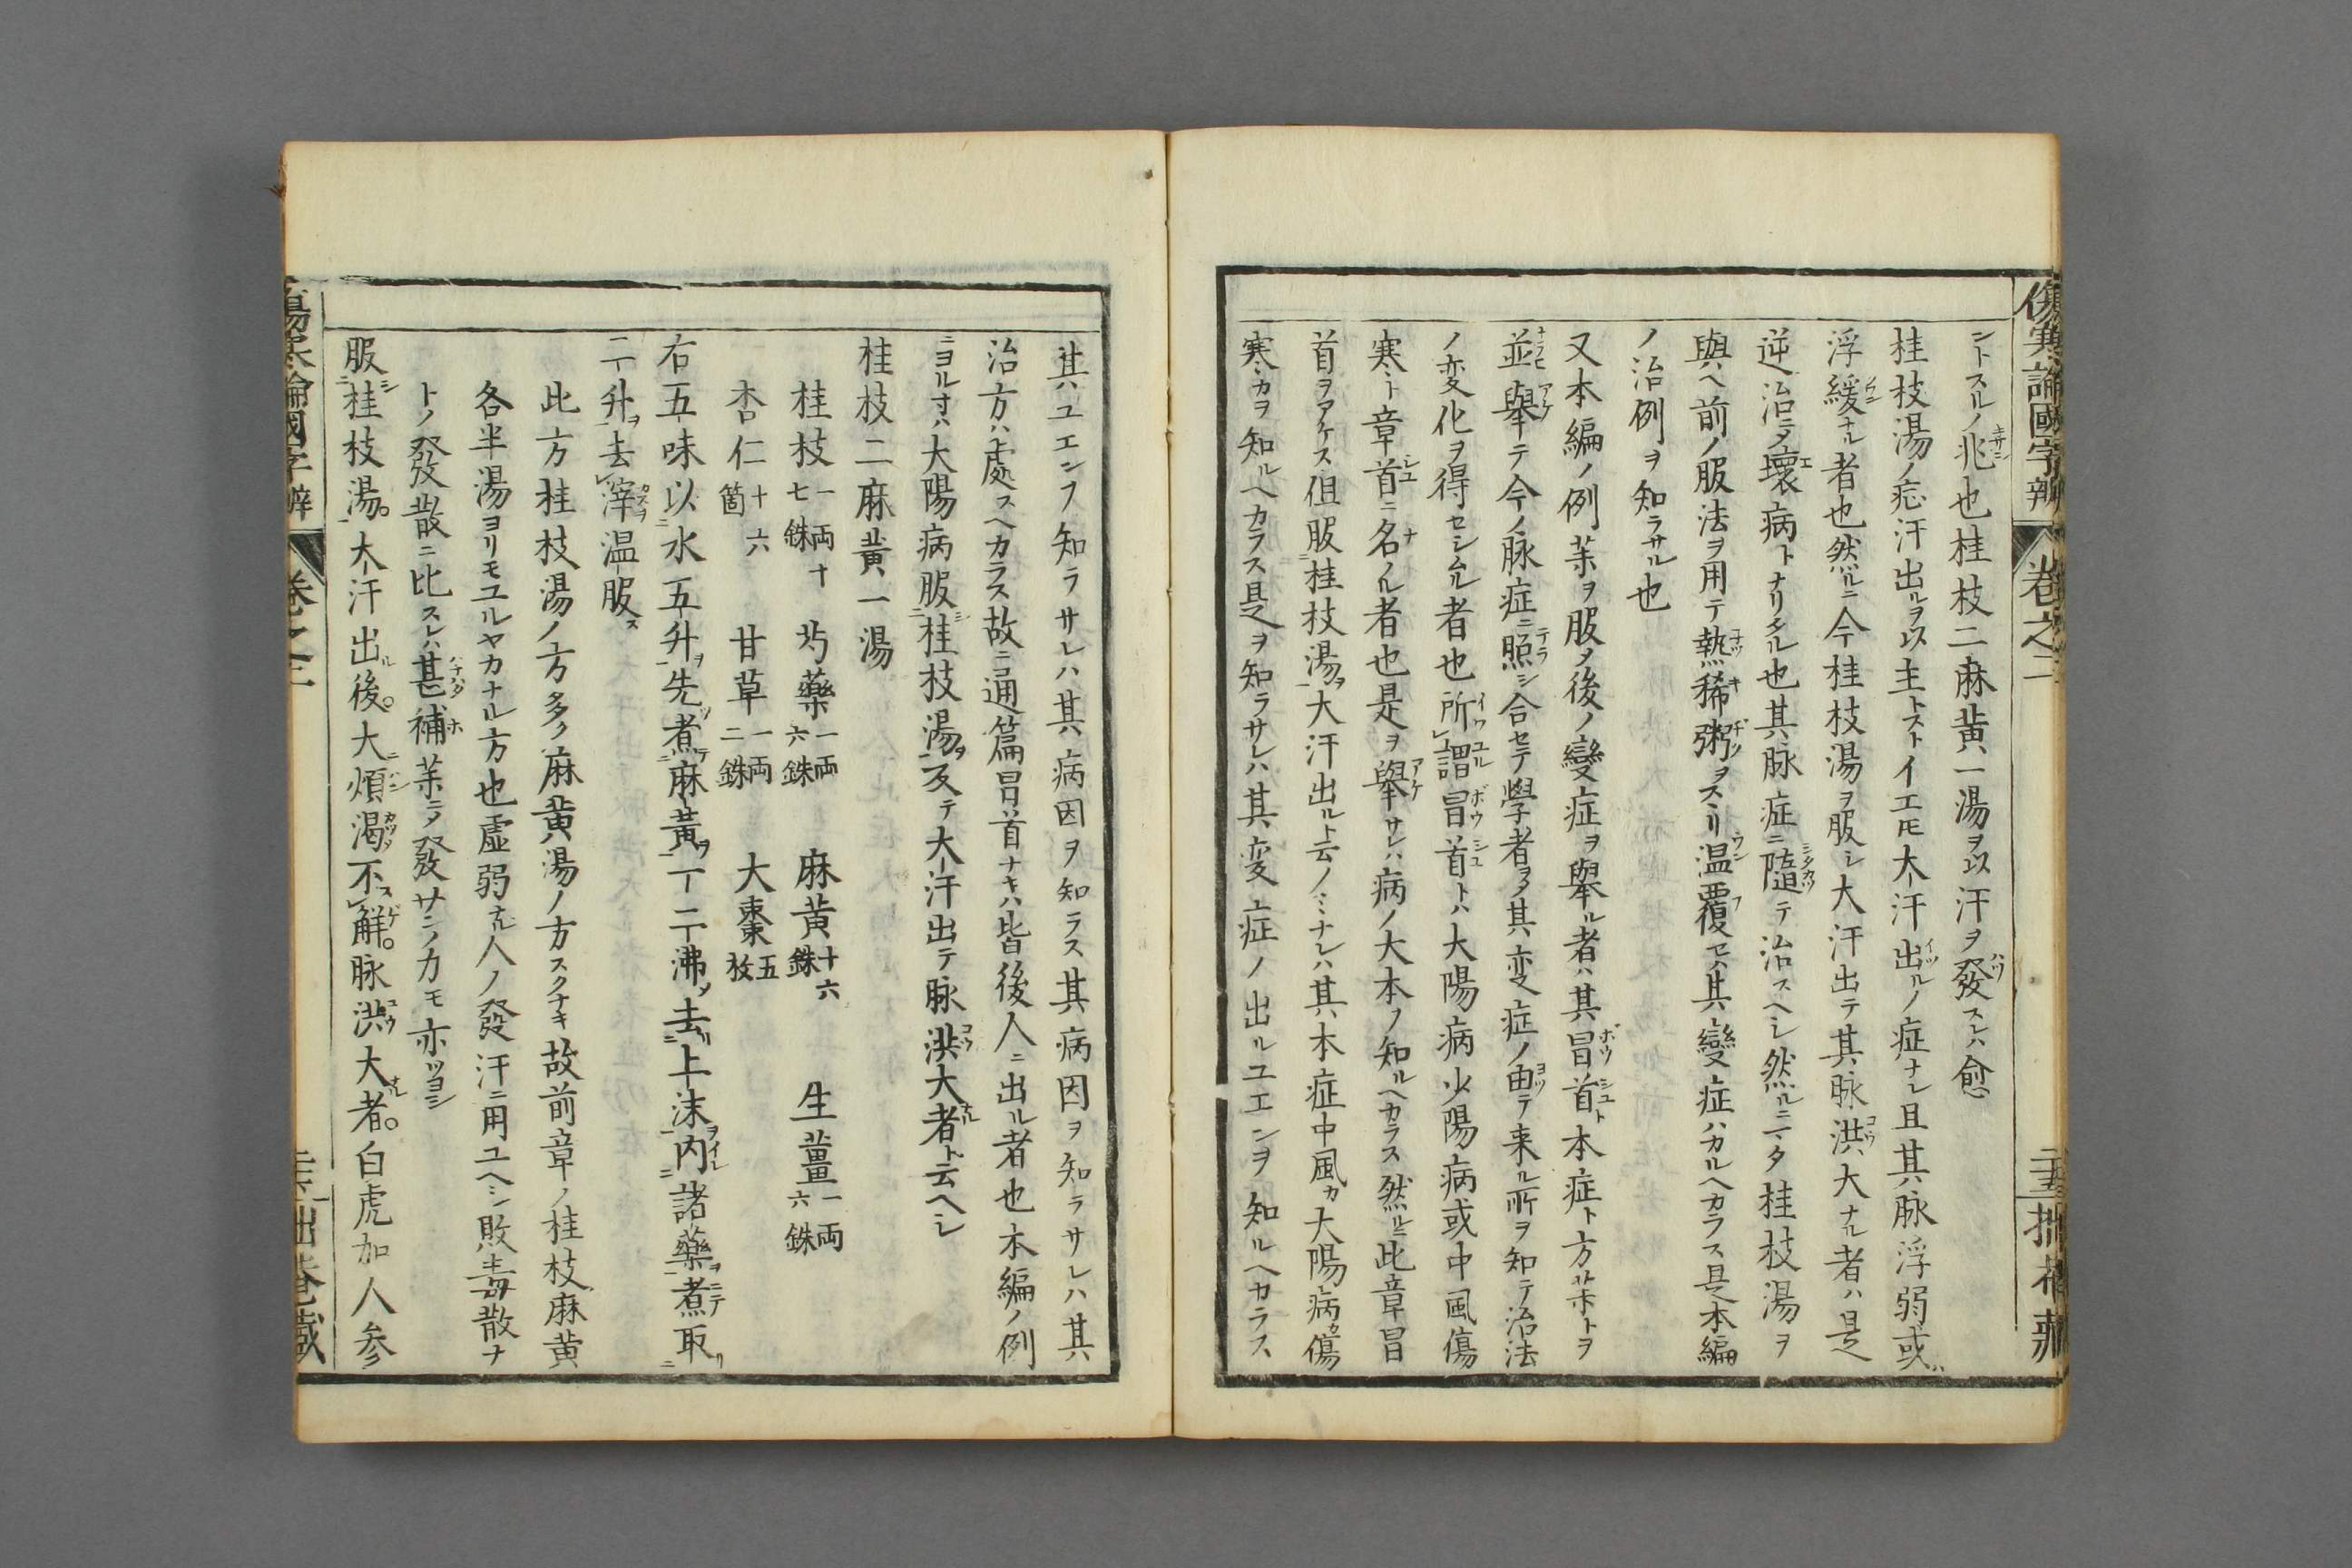 傷寒論國字辨 卷之二 二十五 拙巷藏
ントスルノ兆也桂枝二麻黄一湯ヲ以汗ヲ發スレハ愈
桂枝湯ノ症汗出ルヲ以主トストイエトモ大汗出ルノ症ナレ且其脉浮弱或ハ
浮緩ナル者也然ルニ今桂枝湯ヲ服シ大汗出テ其脉洪大ナル者ハ是
逆治シテ壞病トナリタル也其脉症ニ隨テ治スヘシ然ルニマタ桂枝湯ヲ
與ヘ前ノ服法ヲ用テ熱稀粥ヲスヽリ温覆セハ其變症ハカルヘカラス是本編
ノ治例ヲ知ラサル也
又本編ノ例茱ヲ服メ後ノ變症ヲ舉ル者ハ其冒首ト本症ト方茱トヲ
並舉テ今ノ脉症ニ照シ合セテ學者ヲメ其变症ノ由テ来ル所ヲ知テ治法
ノ变化ヲ得セシムル者也所謂冒首トハ大陽病少陽病或中風傷
寒ト章首ニ名ノル者也是ヲ舉サレハ病ノ大本ヲ知ルヘカラス然ルニ此章冒
首ヲアケス但服桂枝湯ヲ大汗出ルト云ノミナレハ其本症中風カ大陽病カ傷
寒カヲ知ルヘカラス是ヲ知ラサレハ其变症ノ出ルユエンヲ知ルヘカラス
其ユエンヲ知ラサレハ其病因ヲ知ラス其病因ヲ知ラサレハ其
治方ハ處スヘカラス故ニ通篇冒首ナキハ皆後人ニ出ル者也本編ノ例
ニヨル寸ハ大陽病服桂枝湯ヲ反テ大汗出テ脉洪大者ト云ヘシ
桂枝二麻黄一湯
桂枝一両十七銖 芍藥一両六銖 麻黄十六銖 生薑一両六銖
杏仁十六箇 甘草一両二銖 大棗五枚
右五味以水五升ヲ先煮テ麻黄ヲ一二沸メ去リ上沫ヲ内レ諸藥ヲ煮テ取リ
二升ヲ去滓温服ス
此方桂枝湯ノ方多ク麻黄湯ノ方スクナキ故前章ノ桂枝麻黄
各半湯ヨリモユルヤカナル方也虛弱ナル人ノ發汗ニ用ユヘシ敗毒散ナ
トノ發散ニ比スレハ甚補茱ニテ發サンノカモ亦ツヨシ
服シ桂枝湯。大汗出ル後。大煩渴シテ不解。脉洪大ナル者。白虎加人参
傷寒論國字辨 卷之二 二十六 拙巷藏